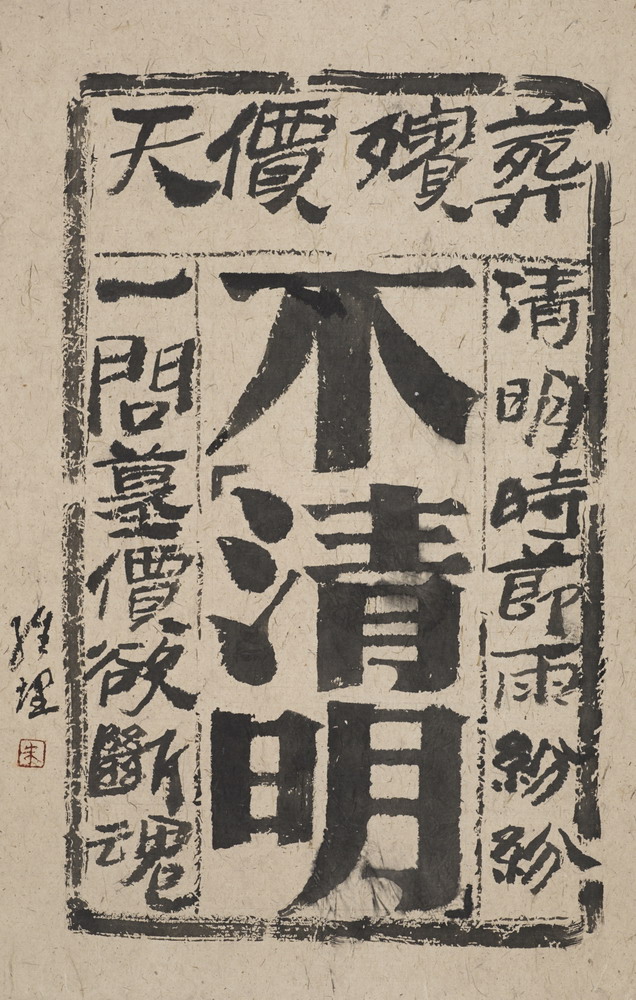 天價殯葬
清明時節雨紛紛
不「清明」
一問墓價欲斷魂
朱